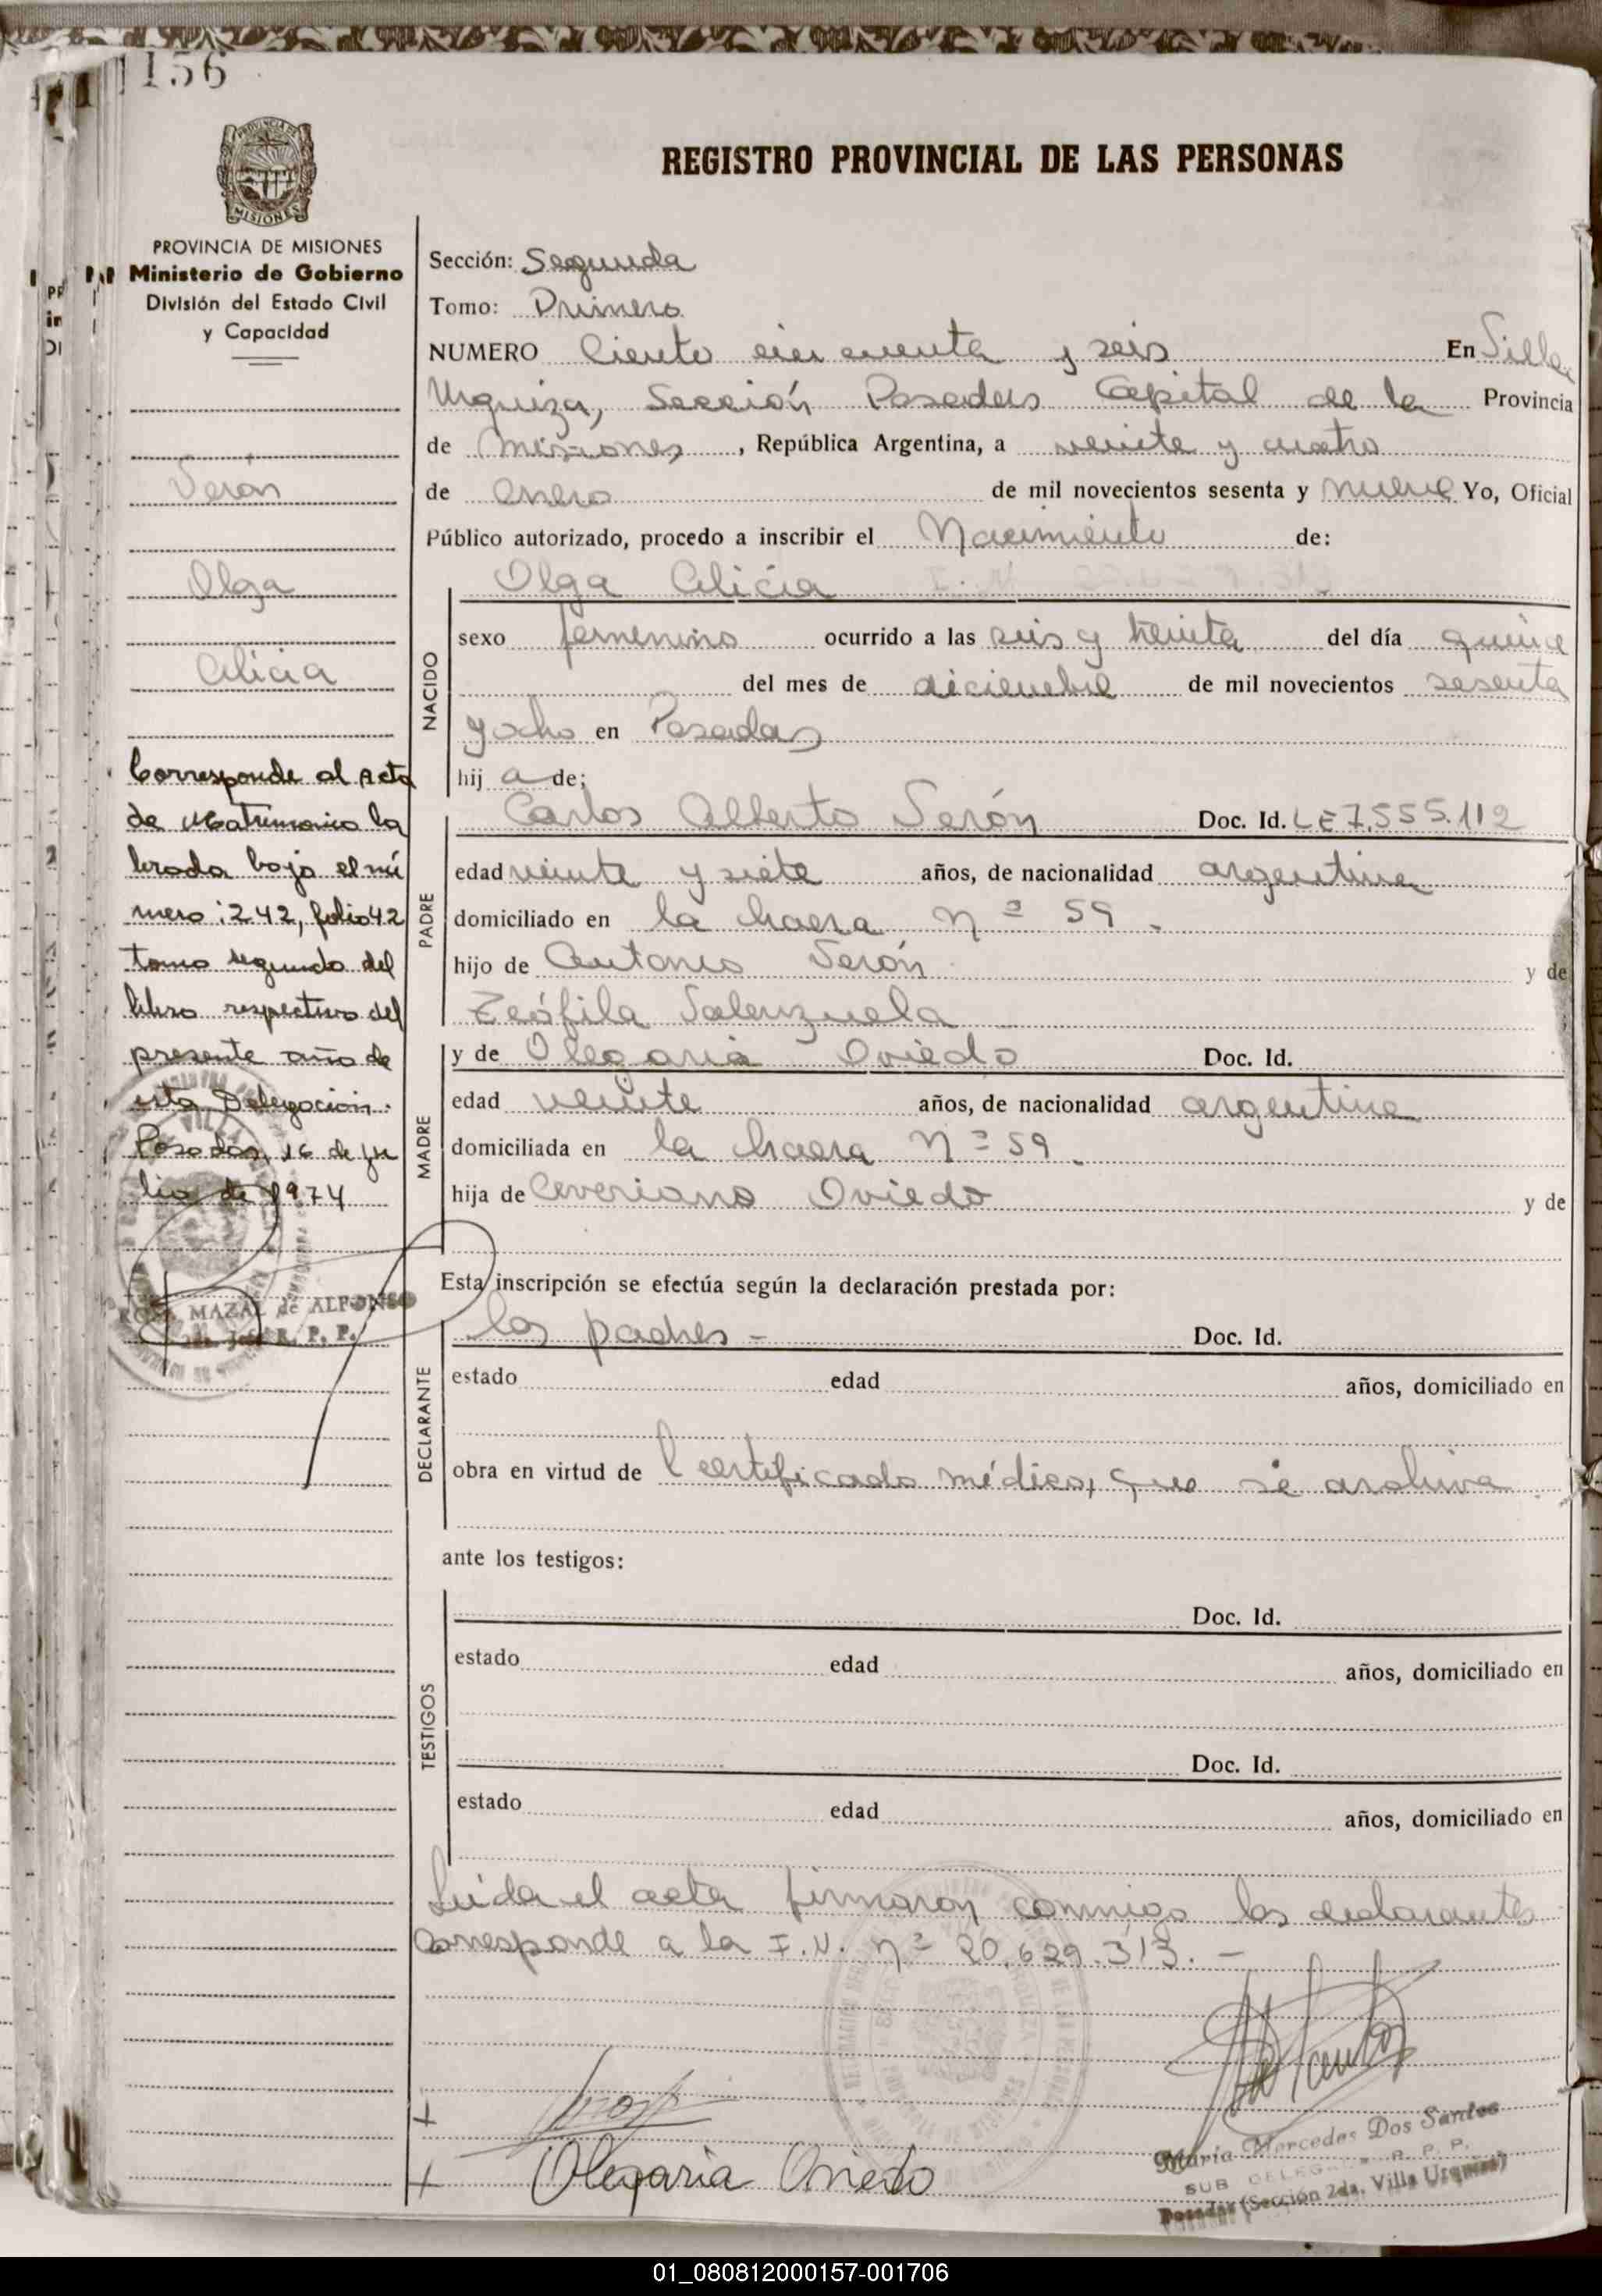 156
PROVINCIA DE MISIONES
Ministerio de Gobierno
División del Estado Civil
y Capacidad
Verón
Olga
Alicia
Corresponde al Acta
de Matrimonio la
brada bajo el nú
mero: 242, folio 42
tomo segundo del
libro respectivo del
presente año de
esta Delegación.
Posadas, 16 de ju
lio de 1974
MAZAL de ALFONSO
R. P. P.
REGISTRO PROVINCIAL DE LAS PERSONAS
Sección: Segunda
Tomo: Primero
NUMERO Ciento cincuenta y seis En Villa
Urquiza, Sección Posadas Capital de la Provincia
de Misiones, República Argentina, a veinte y cuatro
de enero de mil novecientos sesenta y nueve Yo, Oficial
Público autorizado, procedo a inscribir el Nacimiento de:
Olga Alicia
NACIDO
sexo femenino ocurrido a las seis y treinta del día quince
del mes de diciembre de mil novecientos sesenta
y ocho en Posadas
hij a de;
PADRE
Carlos Alberto Verón Doc. Id. LE 7.555.112
edad veinte y siete años, de nacionalidad argentina
domiciliado en la chacra Nº 59.
hijo de Antonio Verón y de
Teófila Valenzuela
MADRE
y de Olegaria Oviedo Doc. Id.
edad veinte años, de nacionalidad argentina
domiciliada en la chacra Nº 59.
hija de Ceveriano Oviedo y de
Esta inscripción se efectúa según la declaración prestada por:
DECLARANTE
los padres - Doc. Id.
estado edad años, domiciliado en
obra en virtud de certificado médico, que se archiva
ante los testigos:
TESTIGOS
Doc. Id.
estado edad años, domiciliado en
Doc. Id.
estado edad años, domiciliado en
Leída el acta firmaron conmigo los declarantes
Corresponde a la I.N. nº 20.629.313. -
Olegaria Oviedo
Maria Mercedes Dos Santos
SUB DELEG R. P. P.
Posadas (Sección 2da. Villa Urquiza)
01_080812000157-001706